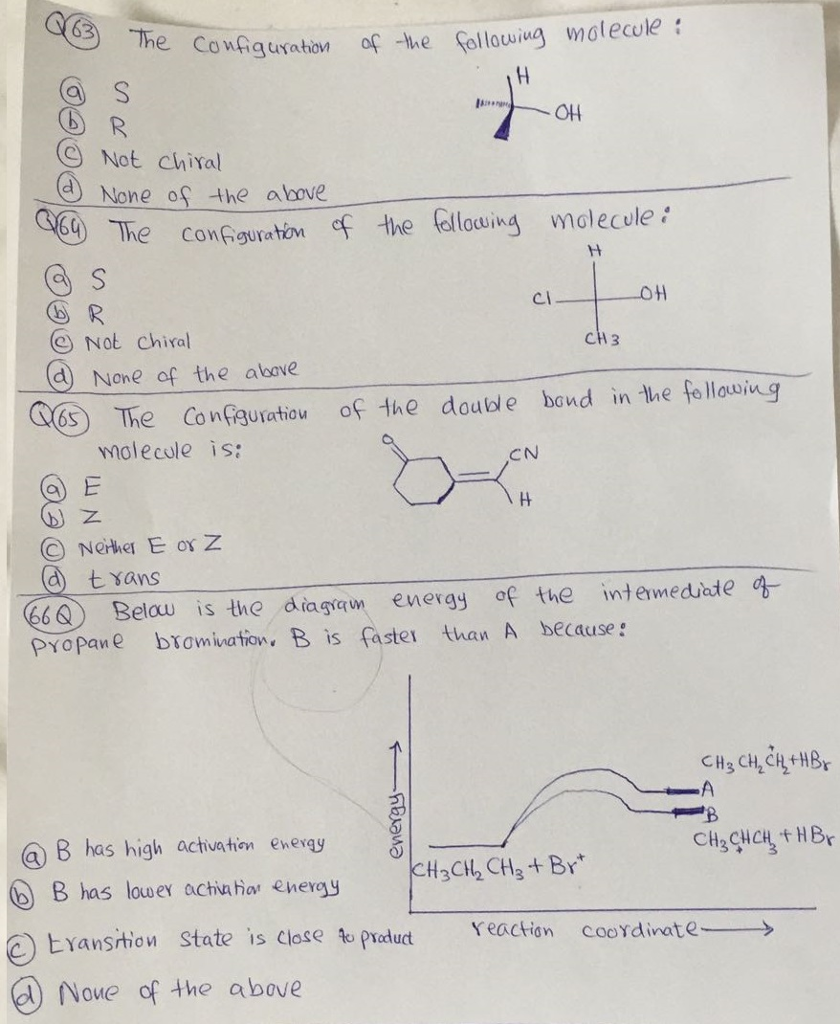 Q63 The Configuration of the following molecule:
H
OH
a S
b R
c Not chiral
d None of the above
Q64 The configuration of the following molecule:
H
Cl OH
CH3
a S
b R
c Not chiral
d None of the above
Q65 The Configuration of the double bond in the following
molecule is:
O
CN
H
a E
b Z
c Neither E or Z
d trans
66Q Below is the diagram energy of the intermediate of
propane bromination. B is faster than A because:
energy→
CH3 CH2 ĊH2+HBr
A
B
CH3CHCH3 + HBr
+
CH3CH2 CH3 + Br+
reaction coordinate→
a B has high activation energy
b B has lower activation energy
c transition state is close to product
d None of the above